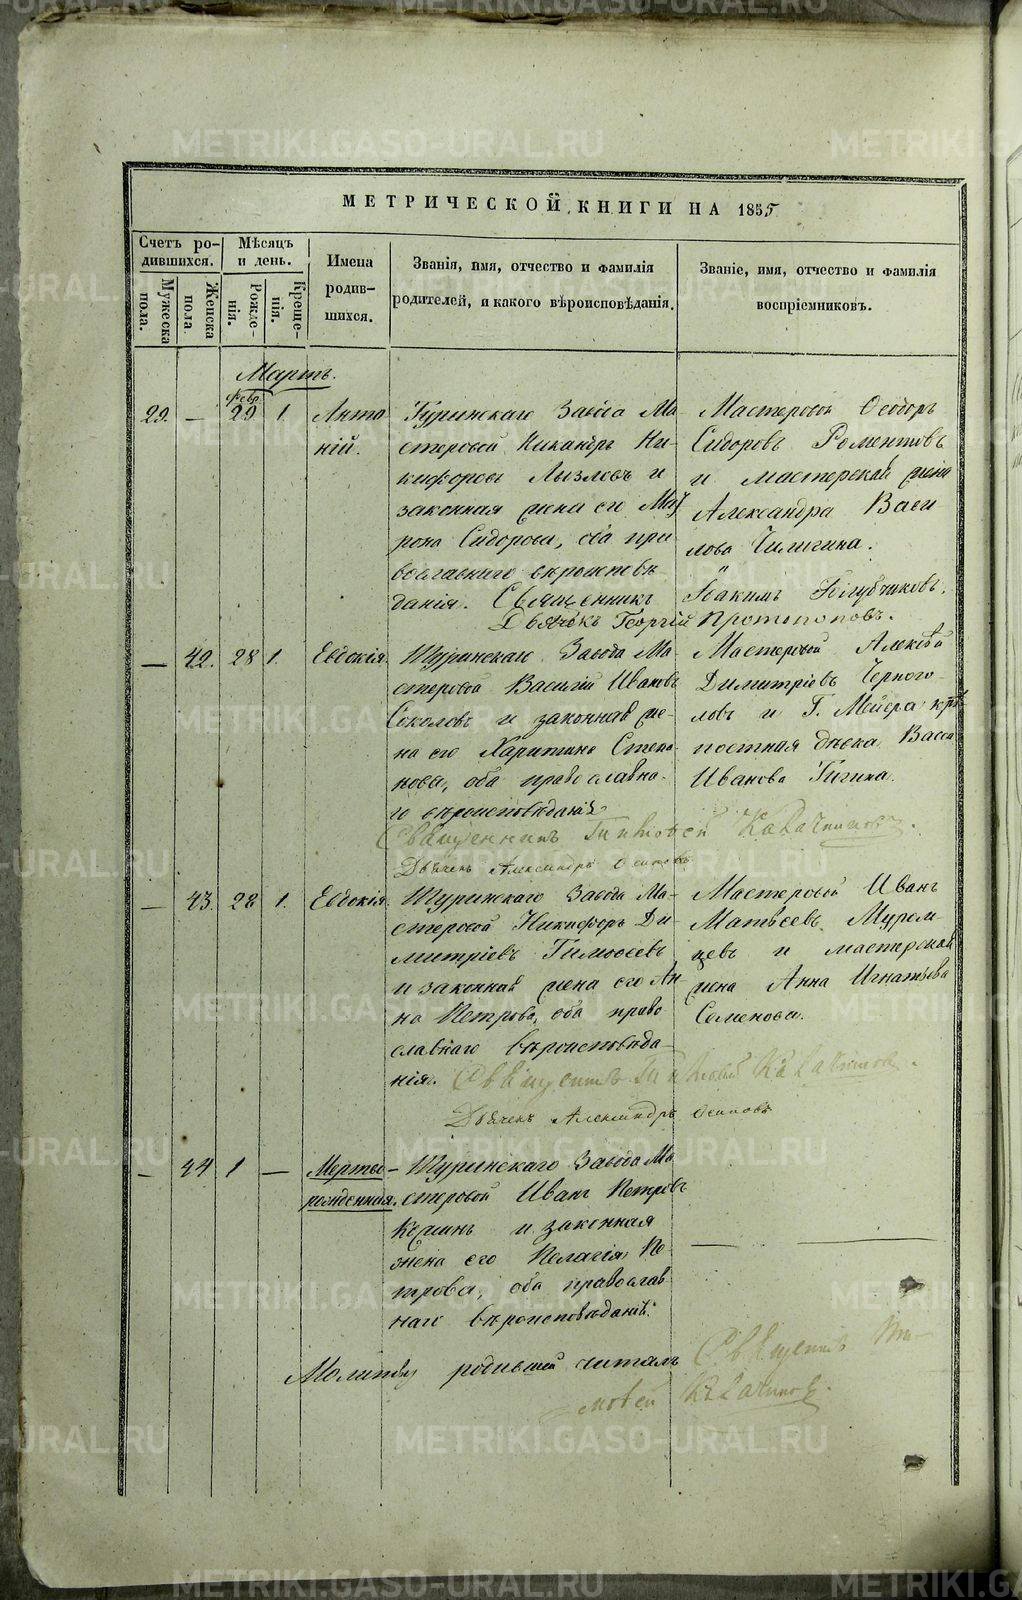 МЕТРИЧЕСКОЙ КНИГИ НА 1855
Счетъ ро-
дившихся.
Мужеска
пола.
Женска
пола.
Мѣсяцъ
и день.
Рожде-
нія.
Креще-
нія.
Имена
родив-
шихся.
Званія, имя, отчество и фамилія
родителей, и какого вѣроисповѣданія.
Званіе, имя, отчество и фамилія
воспріемниковъ.
Мартъ.
29. — Февр. 29 1. Анто
ній.
Туринскаго Завода Ма
стеровой Никандръ Ни-
кифоровъ Лызловъ и
законная жена его Мат
рона Сидорова, оба пра
вославнаго вѣроисповѣ
данія. Священникъ Іоакимъ Голубчиковъ.
Дьячекъ Георгій Протопоповъ.
Мастеровой Ѳеодоръ
Сидоровъ Романтовъ
и мастерская жена
Александра Васи
лова Чиличина.
— 42. 28 1. Евдокія.
Туринскаго Завода Ма-
стеровой Василій Ивановъ
Соколовъ и законная же-
на его Харитина Степа-
нова, оба православна-
го вѣроисповѣданія
Священникъ Тимоѳей
Дьячекъ Александръ Осиповъ
Мастеровой Алексѣй
Димитріевъ Черного-
ловъ и Г. Мейера крѣ
постная дѣвка Васса
Иванова
— 43. 28 1. Евдокія.
Туринскаго Завода Ма-
стеровой Никифоръ Ди-
митріевъ Тимоѳеевъ
и законная жена его Ан
на Петрова, оба право
славнаго вѣроисповѣда-
нія. Священникъ Тимоѳей
Дьячекъ Александръ Осиповъ
Мастеровой Иванъ
Матвѣевъ Муром-
цевъ и мастерская
жена Анна Игнатьева
Семенова.
— 44 1 — Мертво-
рожденная.
Туринскаго Завода Ма
стеровой Иванъ Петровъ
и законная
жена его Пелагія Пе-
трова, оба православ
наго вѣроисповѣданія.
Молитву родившей читалъ Священникъ Ти-
моѳей
METRIKI.GASO-URAL.RU